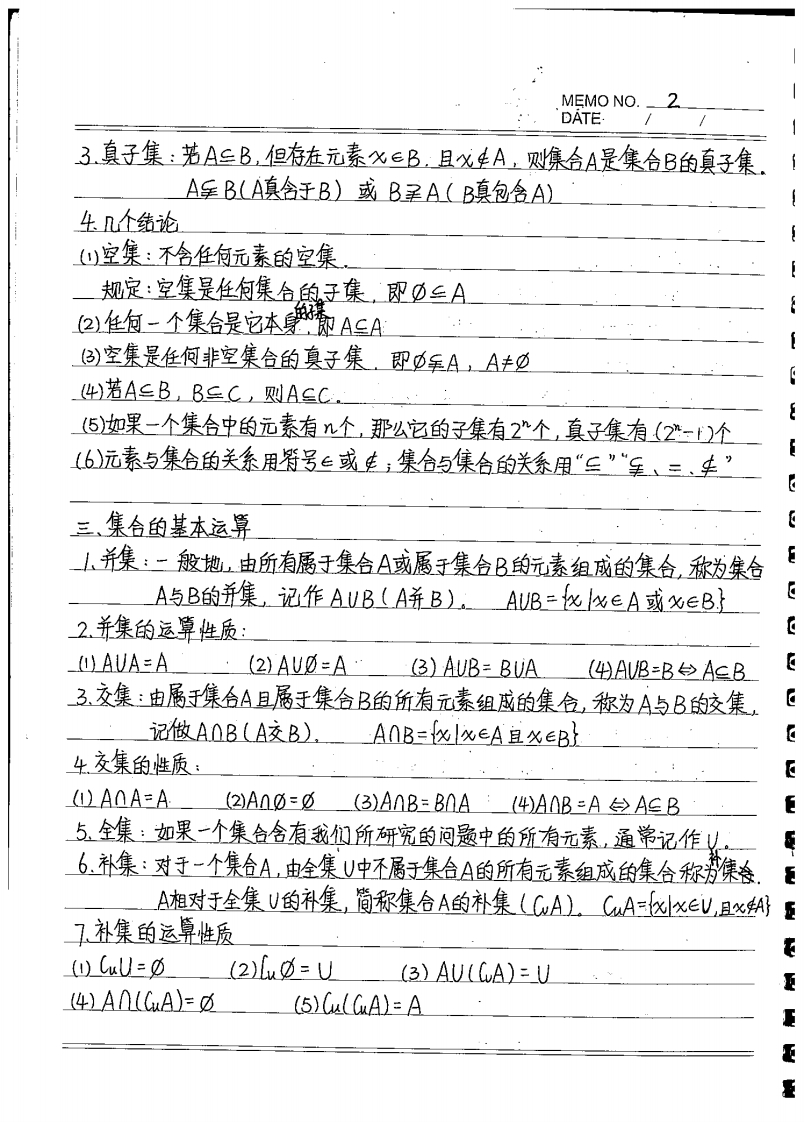 MEMO NO. 2
DATE / /
3.真子集：若A⊆B，但存在元素x∈B，且x∉A，则集合A是集合B的真子集。
A⫋B(A真含于B) 或 B⫌A(B真包含A)
4.几个结论
(1)空集：不含任何元素的空集.
规定：空集是任何集合的子集，即∅⊆A
(2)任何一个集合是它本身的子集，即A⊆A
(3)空集是任何非空集合的真子集，即∅⫋A，A≠∅
(4)若A⊆B，B⊆C，则A⊆C。
(5)如果一个集合中的元素有n个，那么它的子集有2ⁿ个，真子集有(2ⁿ-1)个
(6)元素与集合的关系用符号∈或∉；集合与集合的关系用“⊆”“⫋、=、⊄”
三、集合的基本运算
1.并集：一般地，由所有属于集合A或属于集合B的元素组成的集合，称为集合
A与B的并集，记作A∪B(A并B)。 A∪B={x|x∈A或x∈B}
2.并集的运算性质：
(1) A∪A=A (2) A∪∅=A (3) A∪B=B∪A (4)A∪B=B⇔A⊆B
3.交集：由属于集合A且属于集合B的所有元素组成的集合，称为A与B的交集，
记做A∩B(A交B). A∩B={x|x∈A且x∈B}
4.交集的性质：
(1) A∩A=A (2)A∩∅=∅ (3)A∩B=B∩A (4)A∩B=A⇔A⊆B
5.全集：如果一个集合含有我们所研究的问题中的所有元素，通常记作U。
6.补集：对于一个集合A，由全集U中不属于集合A的所有元素组成的集合称为补集.
A相对于全集U的补集，简称集合A的补集(CᵤA)。 CᵤA={x|x∈U,且x∉A}
7.补集的运算性质
(1) CᵤU=∅ (2)Cᵤ∅=U (3) A∪(CᵤA)=U
(4) A∩(CᵤA)=∅ (5)Cᵤ(CᵤA)=A